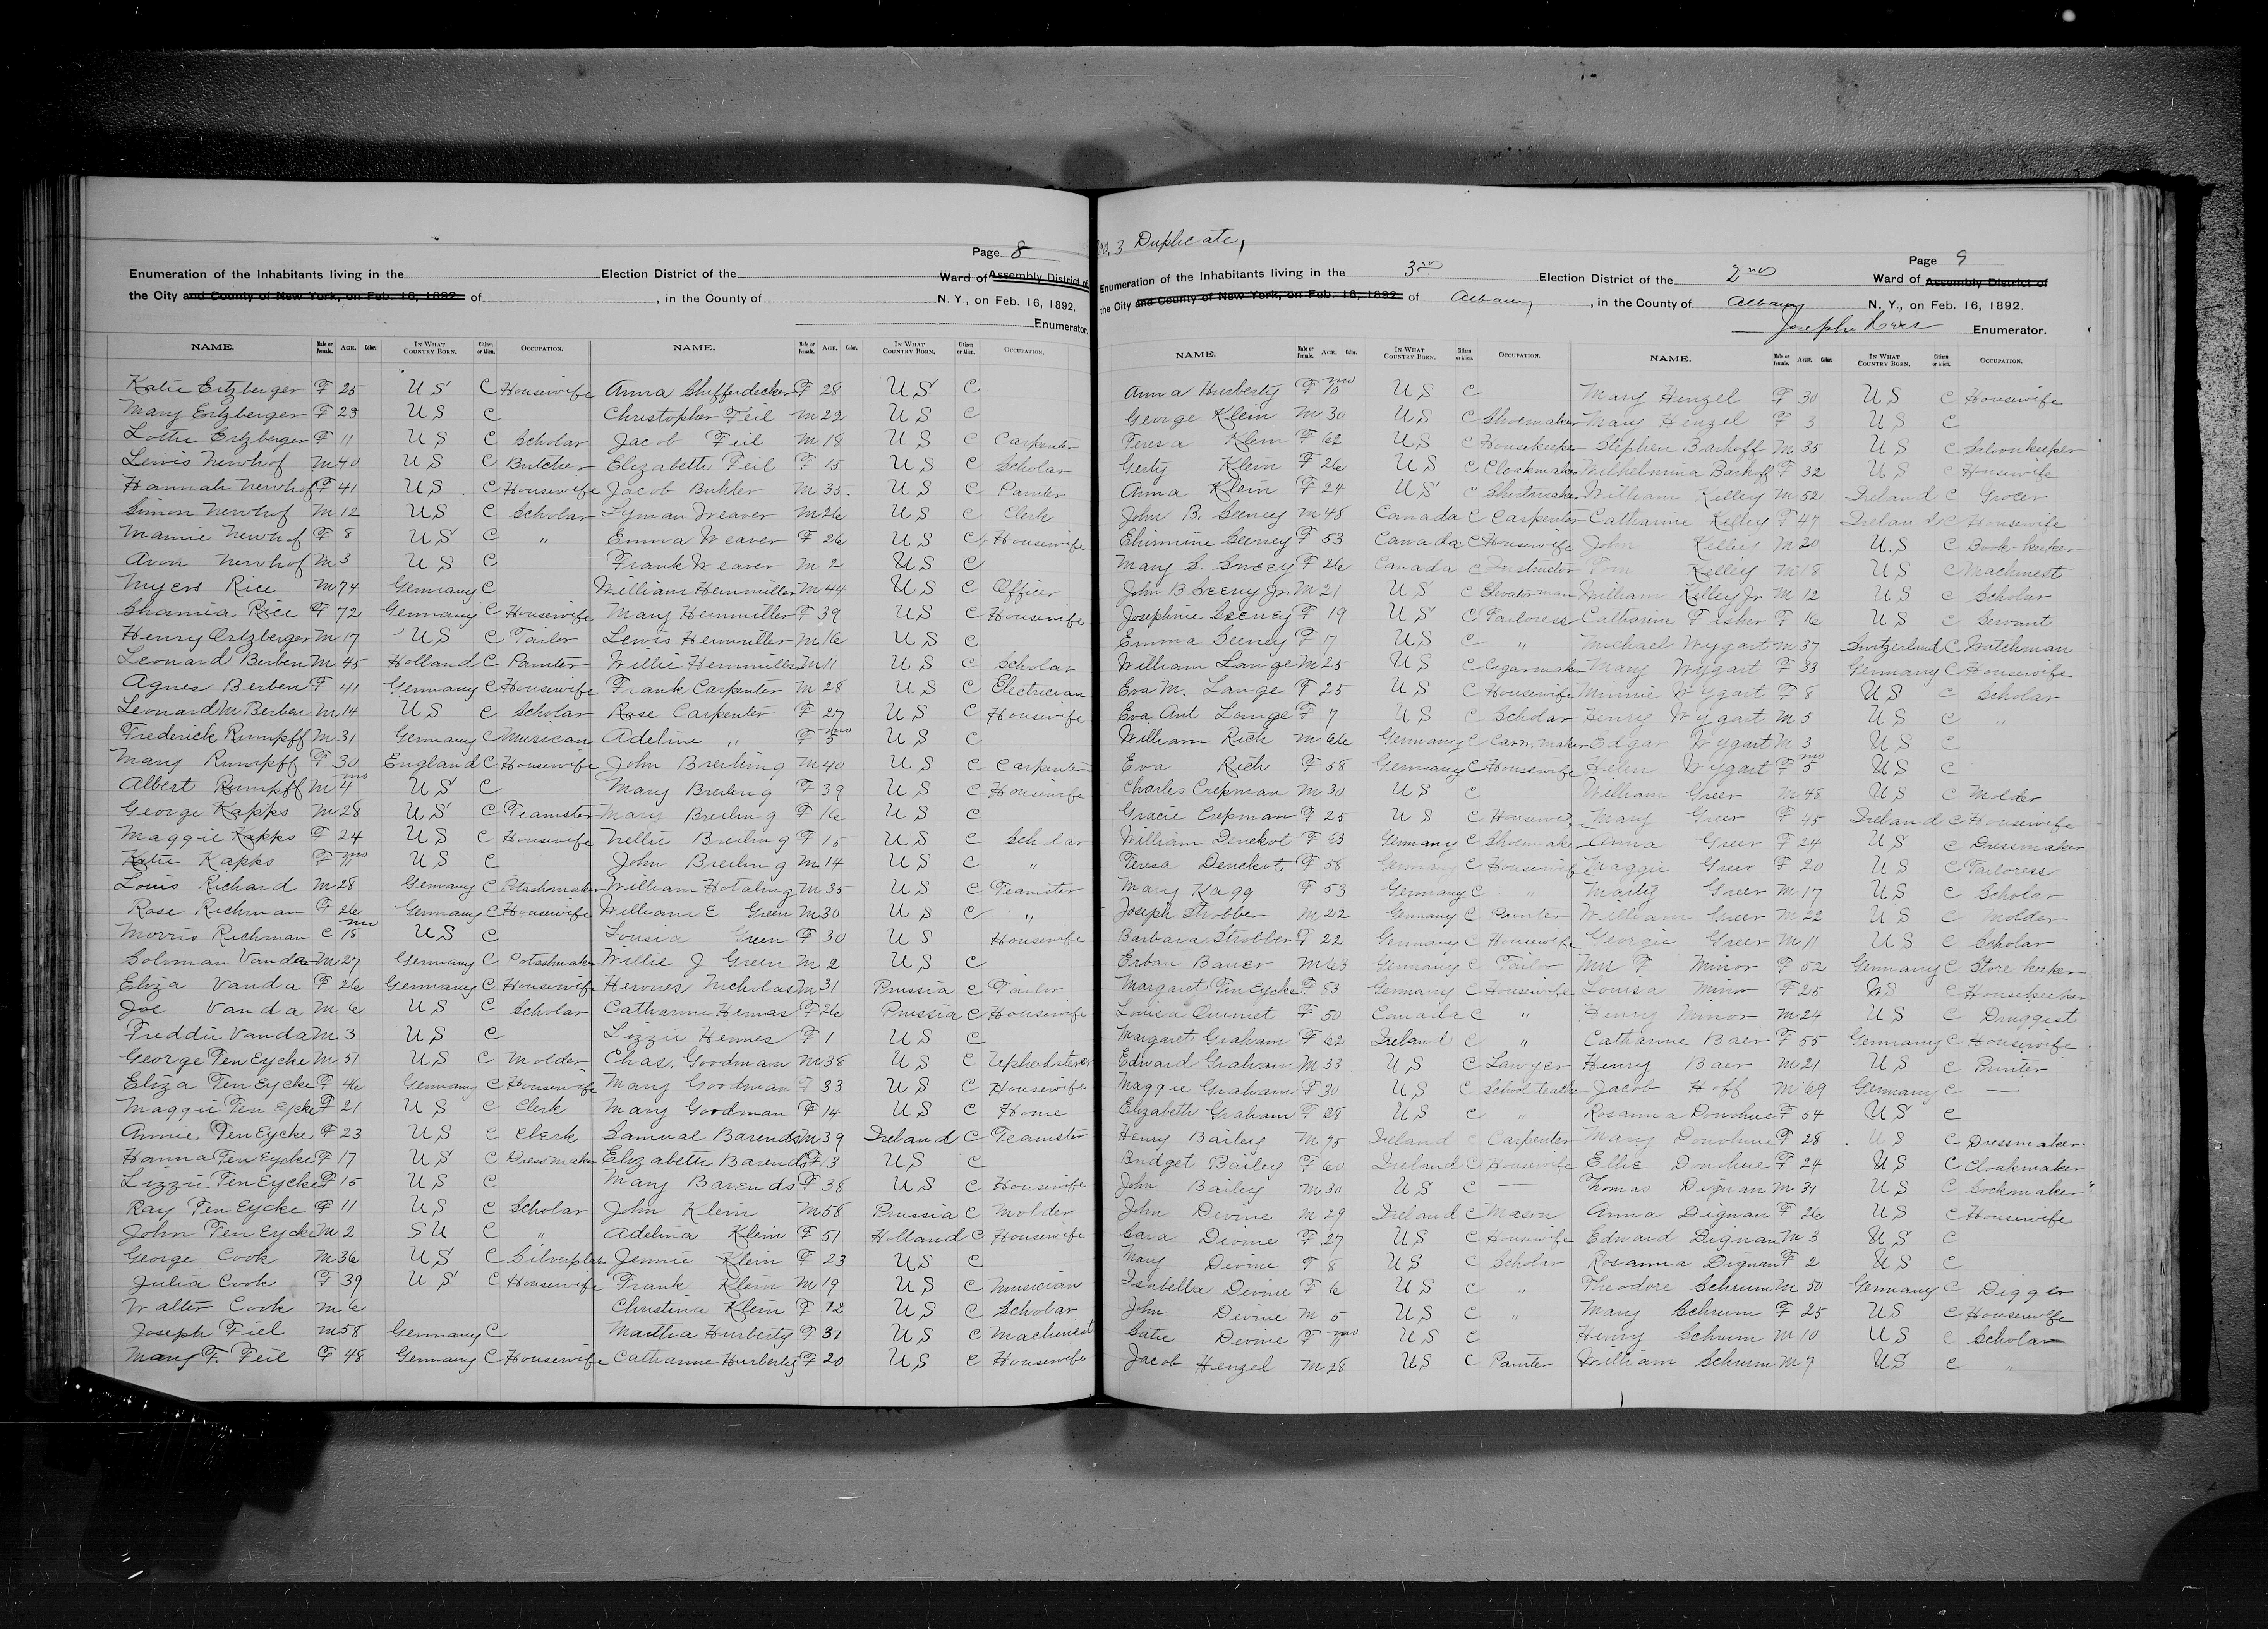 Page 8
Enumeration of the Inhabitants living in the Election District of the Ward of Assembly District of
the City and County of New York, on Feb. 16, 1892 of , in the County of N. Y., on Feb. 16, 1892.
Enumerator.
NAME. Male or Female. AGE. Color. IN WHAT COUNTRY BORN. Citizen or Alien. OCCUPATION. NAME. Male or Female. AGE. Color. IN WHAT COUNTRY BORN. Citizen or Alien. OCCUPATION.
Katie Ertzberger F 25 U S C Housewife
Mary Ertzberger F 23 U S C
Lottie Ertzberger F 11 U S C Scholar
Lewis Newhof M 40 U S C Butcher
Hannah Newhof F 41 U S C Housewife
Simon Newhof M 12 U S C Scholar
Mamie Newhof F 8 U S C "
Aron Newhof M 3 U S C
Myers Rice M 74 Germany C
Rice F 72 Germany C Housewife
Henry Ertzberger M 17 U S C Tailor
Leonard Berben M 45 Holland C Painter
Agnes Berben F 41 Germany C Housewife
Leonard M Berben M 14 U S C Scholar
Frederick Rumpff M 31 Germany C Musican
Mary Rumpff F 30 England C Housewife
Albert Rumpff M 4 mo U S C
George Kapps M 28 U S C Teamster
Maggie Kapps F 24 U S C Housewife
Katie Kapps F 11 mo U S C
Louis Richard M 28 Germany C
Rose Richman F 26 Germany C Housewife
Morris Richman C 15 mo U S C
Soloman Vanda M 27 Germany C
Eliza Vanda F 26 Germany C Housewife
Joe Vanda M 6 U S C Scholar
Freddie Vanda M 3 U S C
George Ten Eycke M 51 U S C Molder
Eliza Ten Eycke F 46 Germany C Housewife
Maggie Ten Eycke F 21 U S C Clerk
Annie Ten Eycke F 23 U S C Clerk
Hanna Ten Eycke F 17 U S C Dressmaker
Lizzie Ten Eycke F 15 U S C
Ray Ten Eycke F 11 U S C Scholar
John Ten Eycke M 2 S U C "
George Cook M 36 U S C Silverplater
Julia Cook F 39 U S C Housewife
Walter Cook M 6
Joseph Fiel M 58 Germany C
Mary F. Feil F 48 Germany C Housewife
Anna Shifferdecker F 28 U S C
Christopher Feil M 22 U S C
Jacob Feil M 18 U S C Carpenter
Elizabeth Feil F 15 U S C Scholar
Jacob Buhler M 33 U S C Painter
Lyman Weaver M 26 U S C Clerk
Emma Weaver F 26 U S C Housewife
Frank Weaver M 2 U S C
William Hemmiller M 44 U S C Officer
Mary Hemmiller F 39 U S C Housewife
Lewis Hemmiller M 16 U S C
Willie Hemmiller M 11 U S C Scholar
Frank Carpenter M 28 U S C Electrician
Rose Carpenter F 27 U S C Housewife
Adeline " F 5 mo U S C
John Breiling M 40 U S C Carpenter
Mary Breiling F 39 U S C Housewife
Mary Breiling F 16 U S C
Nellie Breiling F 15 U S C Scholar
John Breiling M 14 U S C "
William Hotaling M 35 U S C Teamster
William E Green M 30 U S C "
Lousia Green F 30 U S Housewife
Willie J Green M 2 U S C
Hennes Nicholas M 31 Prussia C Tailor
Catharine Hemas F 26 Prussia C Housewife
Lizzie Hennes F 1 U S C
Chas. Goodman M 38 U S C Upholsterer
Mary Goodman F 33 U S C Housewife
Mary Goodman F 14 U S C Home
Samual Barends M 39 Ireland C Teamster
Elizabeth Barends F 13 U S C
Mary Barends F 38 U S C Housewife
John Klein M 58 Prussia C Molder
Adelina Klein F 51 Holland C Housewife
Jennie Klein F 23 U S C
Frank Klein M 19 U S C Musician
Christina Klein F 12 U S C Scholar
Martha Hurberty F 31 U S C Machinest
Catharine Hurberty F 20 U S C Housewife
3 Duplicate,
Page 9
Enumeration of the Inhabitants living in the 3rd Election District of the 2nd Ward of Assembly District of
the City and County of New York, on Feb. 16, 1892 of Albany , in the County of Albany N. Y., on Feb. 16, 1892.
Joseph Enumerator.
NAME. Male or Female. AGE. Color. IN WHAT COUNTRY BORN. Citizen or Alien. OCCUPATION. NAME. Male or Female. AGE. Color. IN WHAT COUNTRY BORN. Citizen or Alien. OCCUPATION.
Anna Hurberty F 10 mo U S C
George Klein M 30 U S C Shoemaker
Teresa Klein F 62 U S C Housekeeper
Gerty Klein F 26 U S C Cloakmaker
Anna Klein F 24 U S C Shirtmaker
John B. Seeney M 48 Canada C Carpenter
Seeney F 53 Canada C Housewife
Mary S. F 26 Canada C Instructor
John B Seeny Jr M 21 U S C
Josephine Seeney F 19 U S C Tailoress
Emma Seeney F 17 U S C "
William Lange M 25 U S C Cigarmaker
Eva M. Lange F 25 U S C Housewife
Eva Ant Lange F 7 U S C Scholar
William Rich M 66 Germany C
Eva Rich F 58 Germany C Housewife
Charles Crepman M 30 U S C
Gracie Crepman F 25 U S C Housewife
William Denekot F 63 Germany C Shoemaker
Teresa Denekot F 58 Germany C Housewife
Mary Kagg F 53 Germany C "
Joseph Strobber M 22 Germany C Painter
Barbara Strobber F 22 Germany C Housewife
Erban Bauer M 63 Germany C Tailor
Margaret Ten Eycke F 53 Germany C Housewife
Louisa Quinnet F 50 Canada C "
Margaret Graham F 62 Ireland C "
Edward Graham M 33 U S C Lawyer
Maggie Graham F 30 U S C School teacher
Elizabeth Graham F 28 U S C "
Henry Bailey M 75 Ireland C Carpenter
Bridget Bailey F 60 Ireland C Housewife
John Bailey M 30 U S C —
John Devine M 29 Ireland C Mason
Sara Devine F 27 U S C Housewife
Mary Devine F 8 U S C Scholar
Isabella Devine F 6 U S C "
John Devine M 5 U S C "
Satie Devine F 11 mo U S C
Jacob Henzel M 28 U S C Painter
Mary Henzel F 30 U S C Housewife
Mary Henzel F 3 U S C
Stephen Barhoff M 35 U S C Saloonkeeper
Wilhelmina Barhoff F 32 U S C Housewife
William Kelley M 52 Ireland C Grocer
Catharine Kelley F 47 Ireland C Housewife
John Kelley M 20 U.S C Book-keeper
Tom Kelley M 18 U S C Machinest
William Kelley Jr M 12 U S C Scholar
Catharine Fisher F 16 U S C Servant
Michael Wygart M 37 Switzerland C Watchman
Mary Wygart F 33 Germany C Housewife
Minnie Wygart F 8 U S C Scholar
Henry Wygart M 5 U S C "
Edgar Wygart M 3 U S C
Helen Wygart F 5 mo U S C
William Greer M 48 U S C Molder
Mary Greer F 45 Ireland C Housewife
Anna Greer F 24 U S C Dressmaker
Maggie Greer F 20 U S C Tailoress
Marty Greer M 17 U S C Scholar
William Greer M 22 U S C Molder
Georgie Greer M 11 U S C Scholar
Minor F 52 Germany C Store keeper
Louisa Minor F 25 U S C Housekeeper
Henry Minor M 24 U S C Druggist
Catharine Baer F 55 Germany C Housewife
Henry Baer M 21 U S C Printer
Jacob Hoff M 69 Germany C —
Rosanna Donohue F 54 U S C
Mary Donohue F 28 U S C Dressmaker
Ellie Donohue F 24 U S C Cloakmaker
Thomas Dignan M 31 U S C
Anna Dignan F 26 U S C Housewife
Edward Dignan M 3 U S C
Rosanna Dignan F 2 U S C
Theodore Schrum M 50 Germany C Digger
Mary Schrum F 25 U S C Housewife
Henry Schrum M 10 U S C Scholar
William Schrum M 7 U S C "